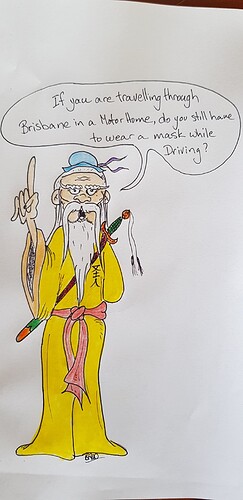 If you are travelling through
Brisbane in a Motor Home, do you still have
to wear a mask while
Driving?